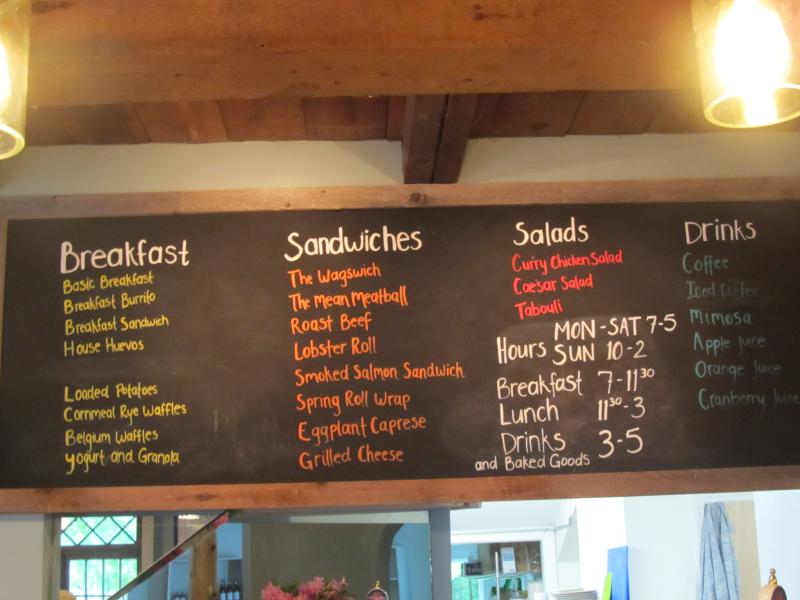 Breakfast
Basic Breakfast
Breakfast Burrito
Breakfast Sandwich
House Huevos
Loaded Potatoes
Cornmeal Rye Waffles
Belgium Waffles
yogurt and Granola
Sandwiches
The Wagswich
The Mean Meatball
Roast Beef
Lobster Roll
Smoked Salmon Sandwich
Spring Roll Wrap
Eggplant Caprese
Grilled Cheese
Salads
Curry Chicken Salad
Caesar Salad
Tabouli
Hours MON-SAT 7-5
SUN 10-2
Breakfast 7-1130
Lunch 1130-3
Drinks 3-5
and Baked Goods
Drinks
Coffee
Iced Coffee
Mimosa
Apple Juice
Orange Juice
Cranberry Juice